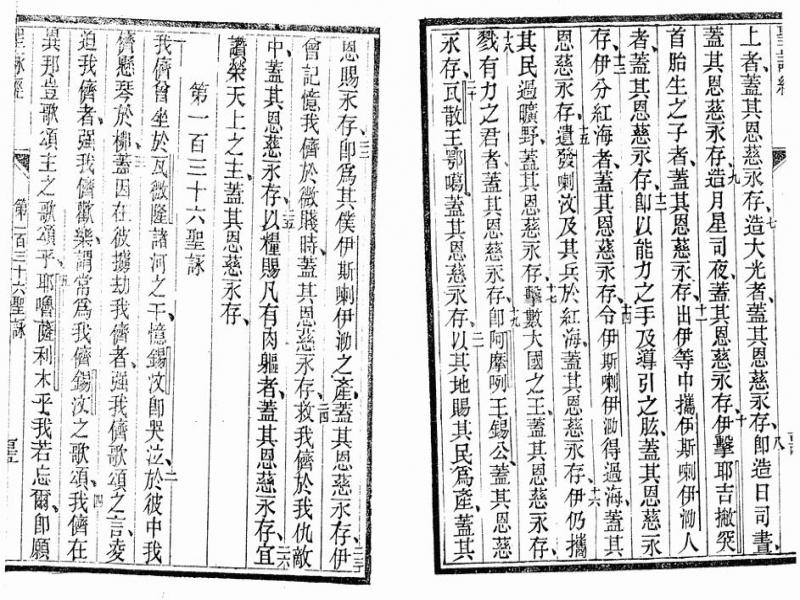 聖詠經
上者、蓋其恩慈永存、七造大光者、蓋其恩慈永存、八卽造日司晝、
蓋其恩慈永存、九造月星司夜、蓋其恩慈永存、十伊擊耶吉撇突
首胎生之子者、蓋其恩慈永存、十一出伊等中攜伊斯喇伊泐人
者、蓋其恩慈永存、十二卽以能力之手及導引之肱、蓋其恩慈永
存、十三伊分紅海者、蓋其恩慈永存、十四令伊斯喇伊泐得過海、蓋其
恩慈永存、十五遺發喇汶及其兵於紅海、蓋其恩慈永存、十六伊仍攜
其民過曠野、蓋其恩慈永存、十七擊數大國之王、蓋其恩慈永存、
十八戮有力之君者、蓋其恩慈永存、十九卽阿摩咧王錫公、蓋其恩慈
永存、二十瓦散王鄂噶、蓋其恩慈永存、二一以其地賜其民爲產、蓋其
恩賜永存、二二卽爲其僕伊斯喇伊泐之產、蓋其恩慈永存、二三伊
曾記憶我儕於微賤時、蓋其恩慈永存、二四救我儕於我仇敵
中、蓋其恩慈永存、二五以糧賜凡有肉軀者、蓋其恩慈永存、二六宜
讚榮天上之主、蓋其恩慈永存、
第一百三十六聖詠
一我儕曾坐於瓦微隆諸河之干、憶錫汶卽哭泣、二於彼中我
儕懸琴於柳、三蓋因在彼擄劫我儕者、强我儕歌頌之言、凌
迫我儕者、强我儕歡樂、謂當爲我儕錫汶之歌頌、四我儕在
異邦豈歌頌主之歌頌乎、五耶嚕薩利木乎、我若忘爾、卽願
聖詠經 第一百三十六聖詠